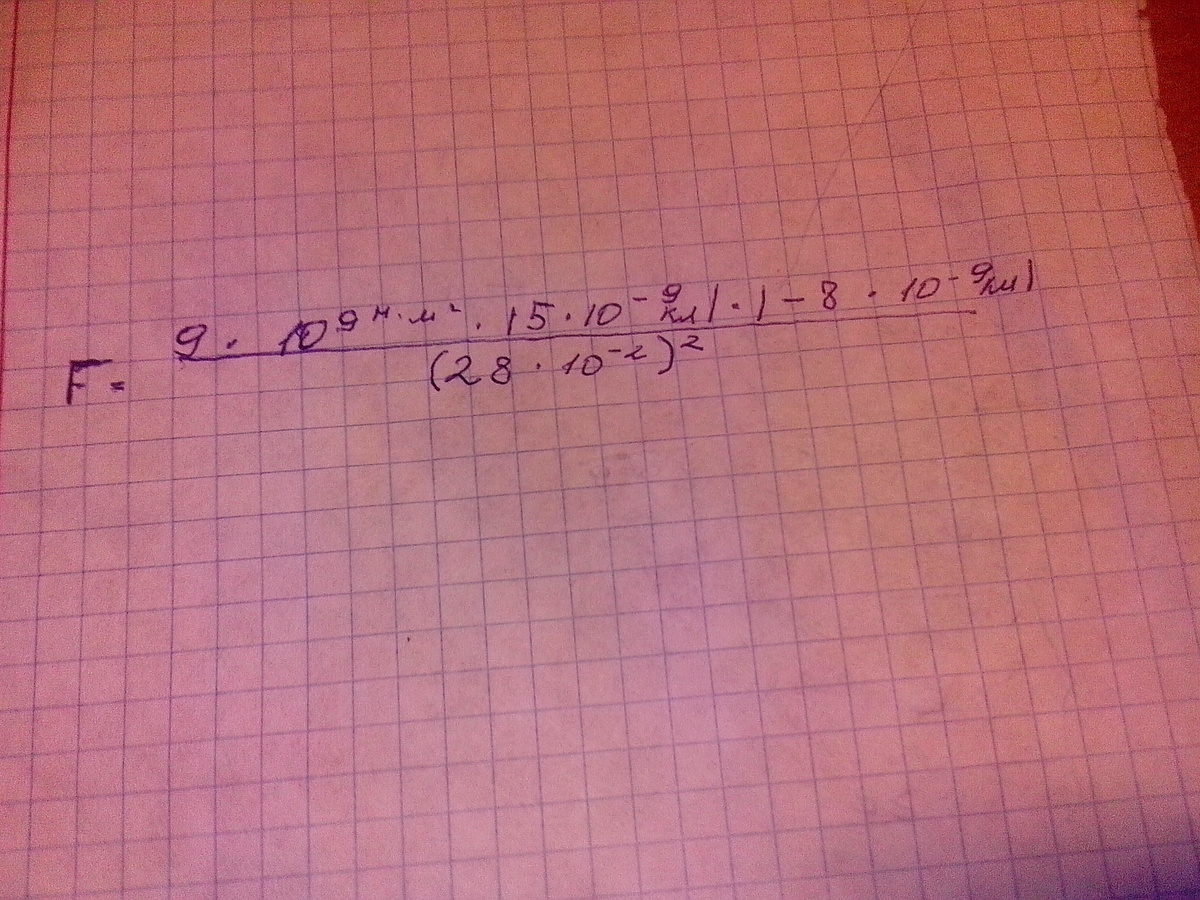 F = 9 · 10⁹ н·м² · 15 · 10⁻⁹кл| · |-8 · 10⁻⁹кл|
(28 · 10⁻²)²